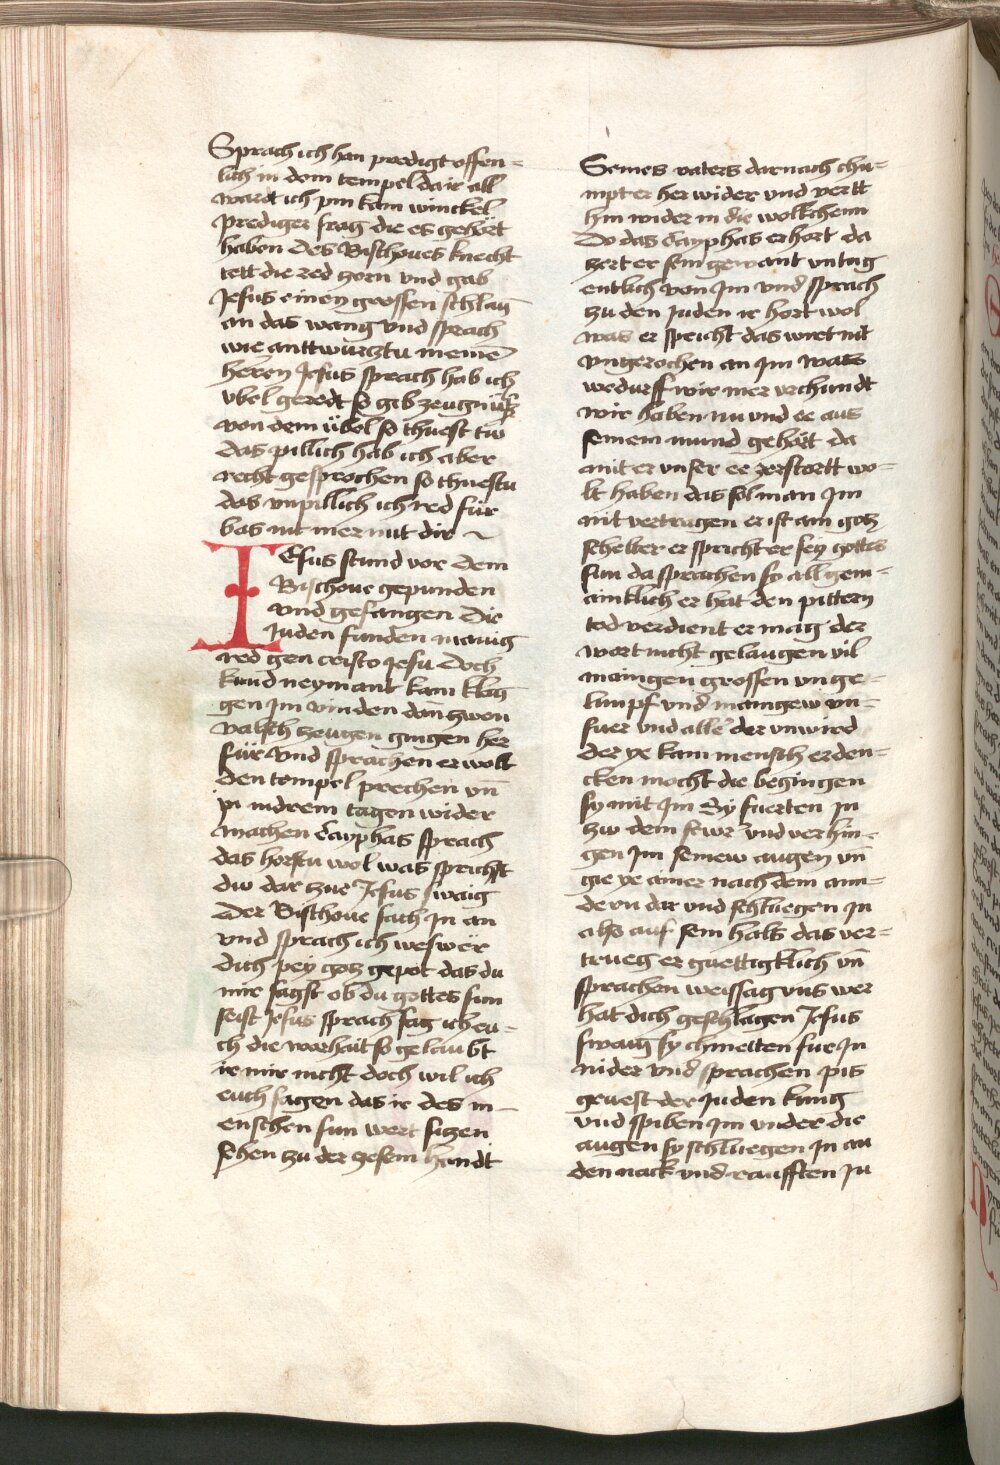 Sprach ich han predigt offen=
lich in dem tempel da ir all
wardt ich pin kain winckel
prediger frag die es gehört
haben Des Bischoues knecht
tett die red zorn vnd gab
Jesus einen grossen schlag
an das wang vnd sprach
wie anttwurztu meinem
heren Jesus sprach hab ich
vbel geredt so gib zeugnüs
von dem übel so thuest tw
das pillich hab ich aber
recht gesprochen so thuestu
das vnpillich ich red für
bas nit mer mit dir ~
IEsus stund vor dem
Bischoue gepunden
vnd gefangen Die
Juden funden manig
red gen cristo Jesu Doch
kund neymant kain klag
gen Jm vinden dan zwen
valsch zeugen gingen her
für vnd sprachen er wolt
den tempel prechen vn̄
in in drein tagen wider
machen Cayphas sprach
das horstu wol was spricht
diw dar zue Jesus swaig
Der Bischoue sach Jn an
vnd sprach ich weswer
dich pey gotz gepot das du
mir sagst ob du gottes sun
seist Jesus sprach sag ich eu=
ch die warhait so gelaubt
ir mir nicht doch wil ich
euch sagen das ir des m-
enschen sun wert sizen
sehen zu der zesem handt
Seines vaters darnach chu=
mpt er her wider vnd vertt
hin wider in die wolkchenn
Do das Cayphas erhort da
zert er sein gewant vntug
entlich von Jm vnd sprach
zu den Juden ir hort wol
was er spricht das wirt nit
vngerochen an Jm was
wedurff wir mer vrchundt
wir haben nu vnd ee aus
seinem mund gehört da
mit er vnser ee zerstortt wo=
lt haben das sol man Jm
nit vertragen er ist ain gotz
schelter er spricht er sey gottes
sun da sprachen sy all gem=
ainklich er hat den pittern
tod verdient er mag der
wort nicht gelaugen vil
maingen grossen vnge=
limpf vnd maingew vn=
fuer vnd alle der vnwird
der ye kain mensch erden=
cken mocht die begingen
sy mit Jm Sy fuerten Jn
zw dem fewr vnd verhin=
gen Jm seinew augen vn̄
gie ye ainer nach dem ann=
dern dar vnd schluegen Jn
als auf sein hals das ver=
trueg er guettigklich vn̄
sprachen weissag vns wer
hat dich geschlagen Jesus
swaig sy chnieten fur Jn
nider vnd sprachen pis
gruest der Juden kunig
vnd spiben Jm vnder die
augen sy schluegen Jn an
den nack vnd raufften Jn